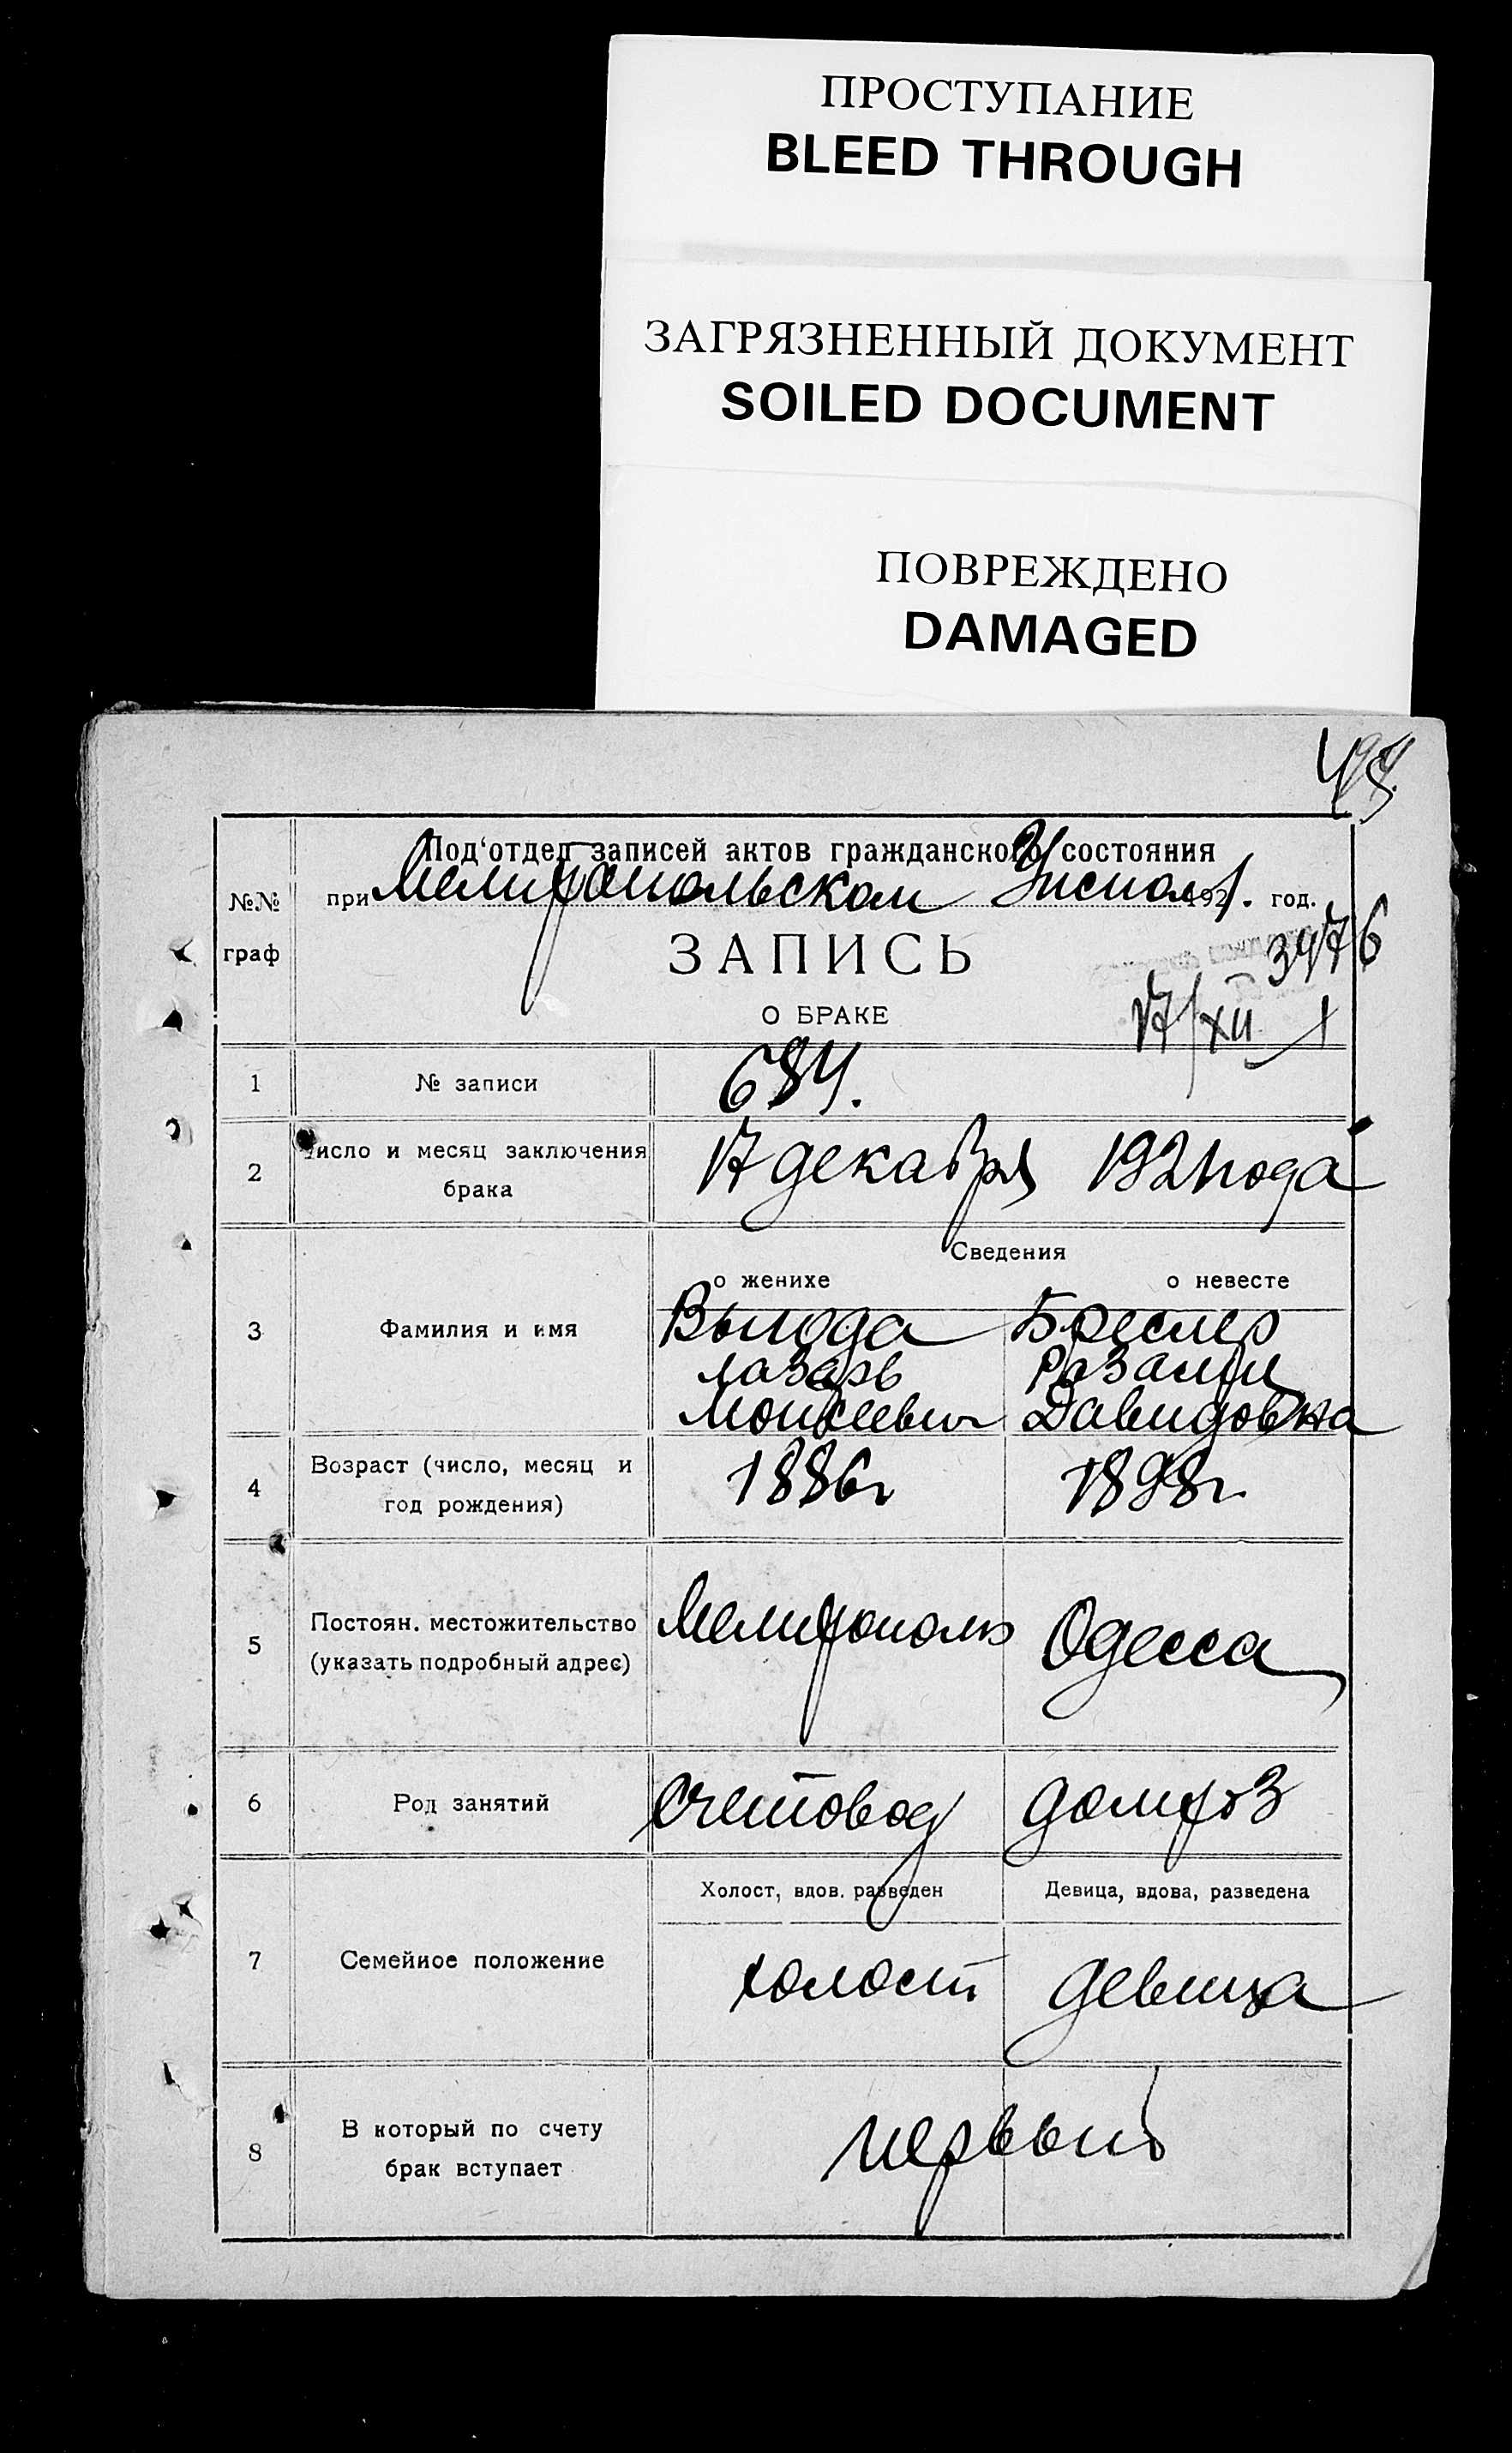 ПРОСТУПАНИЕ
BLEED THROUGH
ЗАГРЯЗНЕННЫЙ ДОКУМЕНТ
SOILED DOCUMENT
ПОВРЕЖДЕНО
DAMAGED
Под‘отдел записей актов гражданского состояния
№№ при Мелитопольском Уисполк 1921. год.
граф
ЗАПИСЬ
3476
О БРАКЕ
17/XII
1 № записи 684.
2 Число и месяц заключения брака 17 декабря 1921 года
Сведения
о женихе о невесте
3 Фамилия и имя Выгода Бреслер
Лазарь Розалия
Моисеевич Давидовна
4 Возраст (число, месяц и год рождения) 1886г 1898г.
5 Постоян. местожительство (указать подробный адрес) Мелитополь Одесса
6 Род занятий Счетовод домхоз
Холост, вдов. разведен Девица, вдова, разведена
7 Семейное положение холост девица
8 В который по счету брак вступает первый